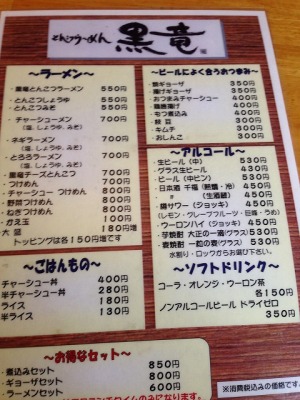 とんこつらーめん 黒竜
～ラーメン～
・黒竜とんこつラーメン 550円
・とんこつしょうゆ 550円
・とんこつみそ 550円
・チャーシューメン 700円
(塩、しょうゆ、みそ)
・ネギラーメン 700円
(塩、しょうゆ、みそ)
・とろろラーメン 700円
・黒竜チーズとんこつ 700円
・つけめん 700円
・チャーシュー つけめん 800円
・野菜つけめん 800円
・ねぎつけめん 800円
・ガス玉 100円
・大盛 180円増
トッピングは各150円増です
～ごはんもの～
チャーシュー丼 400円
半チャーシュー丼 280円
ライス 180円
半ライス 130円
～お得なセット～
・煮込みセット 850円
・ギョーザセット 800円
・ラーメンセット 600円
～ビールによく合うおつまみ～
・焼ギョーザ
・揚げギョーザ
・おつまみチャーシュー 400円
・鶏唐揚げ 400円
・もつ煮込み 400円
・枝豆 300円
・キムチ 300円
・おしんこ 300円
～アルコール～
・生ビール(中) 530円
・グラス生ビール 430円
・ビール(中ビン) 530円
・日本酒 千福(熱燗・冷) 450円
〃 (生酒蔵) 450円
・錫サワー(ジョッキ) 450円
(レモン・グレープフルーツ・巨峰・うめ)
・ウーロンハイ(ジョッキ) 450円
・芋焼酎 大正の一滴(グラス) 530円
・麦焼酎 一粒の麦(グラス) 530円
水割り・ロックからお選び下さい。
～ソフトドリンク～
コーラ・オレンジ・ウーロン茶
各150円
ノンアルコールビール ドライゼロ
350円
※消費税込みの価格です。